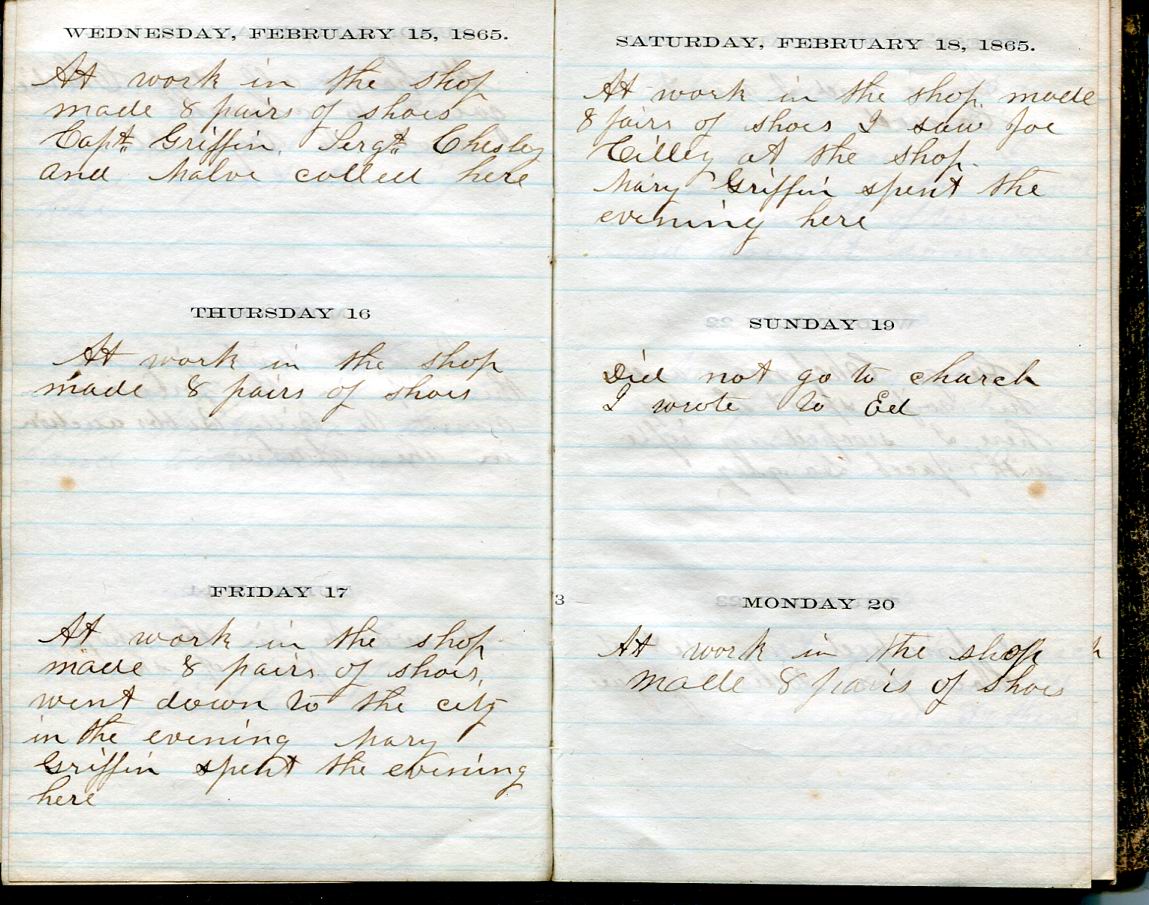 WEDNESDAY, FEBRUARY 15, 1865.
At work in the shop
made 8 pairs of shoes
Capt. Griffin. Sergt. Chesley
and called here
THURSDAY 16
At work in the shop
made 8 pairs of shoes
FRIDAY 17
At work in the shop
made 8 pairs of shoes,
went down to the city
in the evening Mary
Griffin spent the evening
here
3
SATURDAY, FEBRUARY 18, 1865.
At work in the shop. made
8 pairs of shoes I saw Joe
Cilley at the shop.
Mary Griffin spent the
evening here
SUNDAY 19
Did not go to church
I wrote to Ed
MONDAY 20
At work in the shop
made 8 pairs of shoes